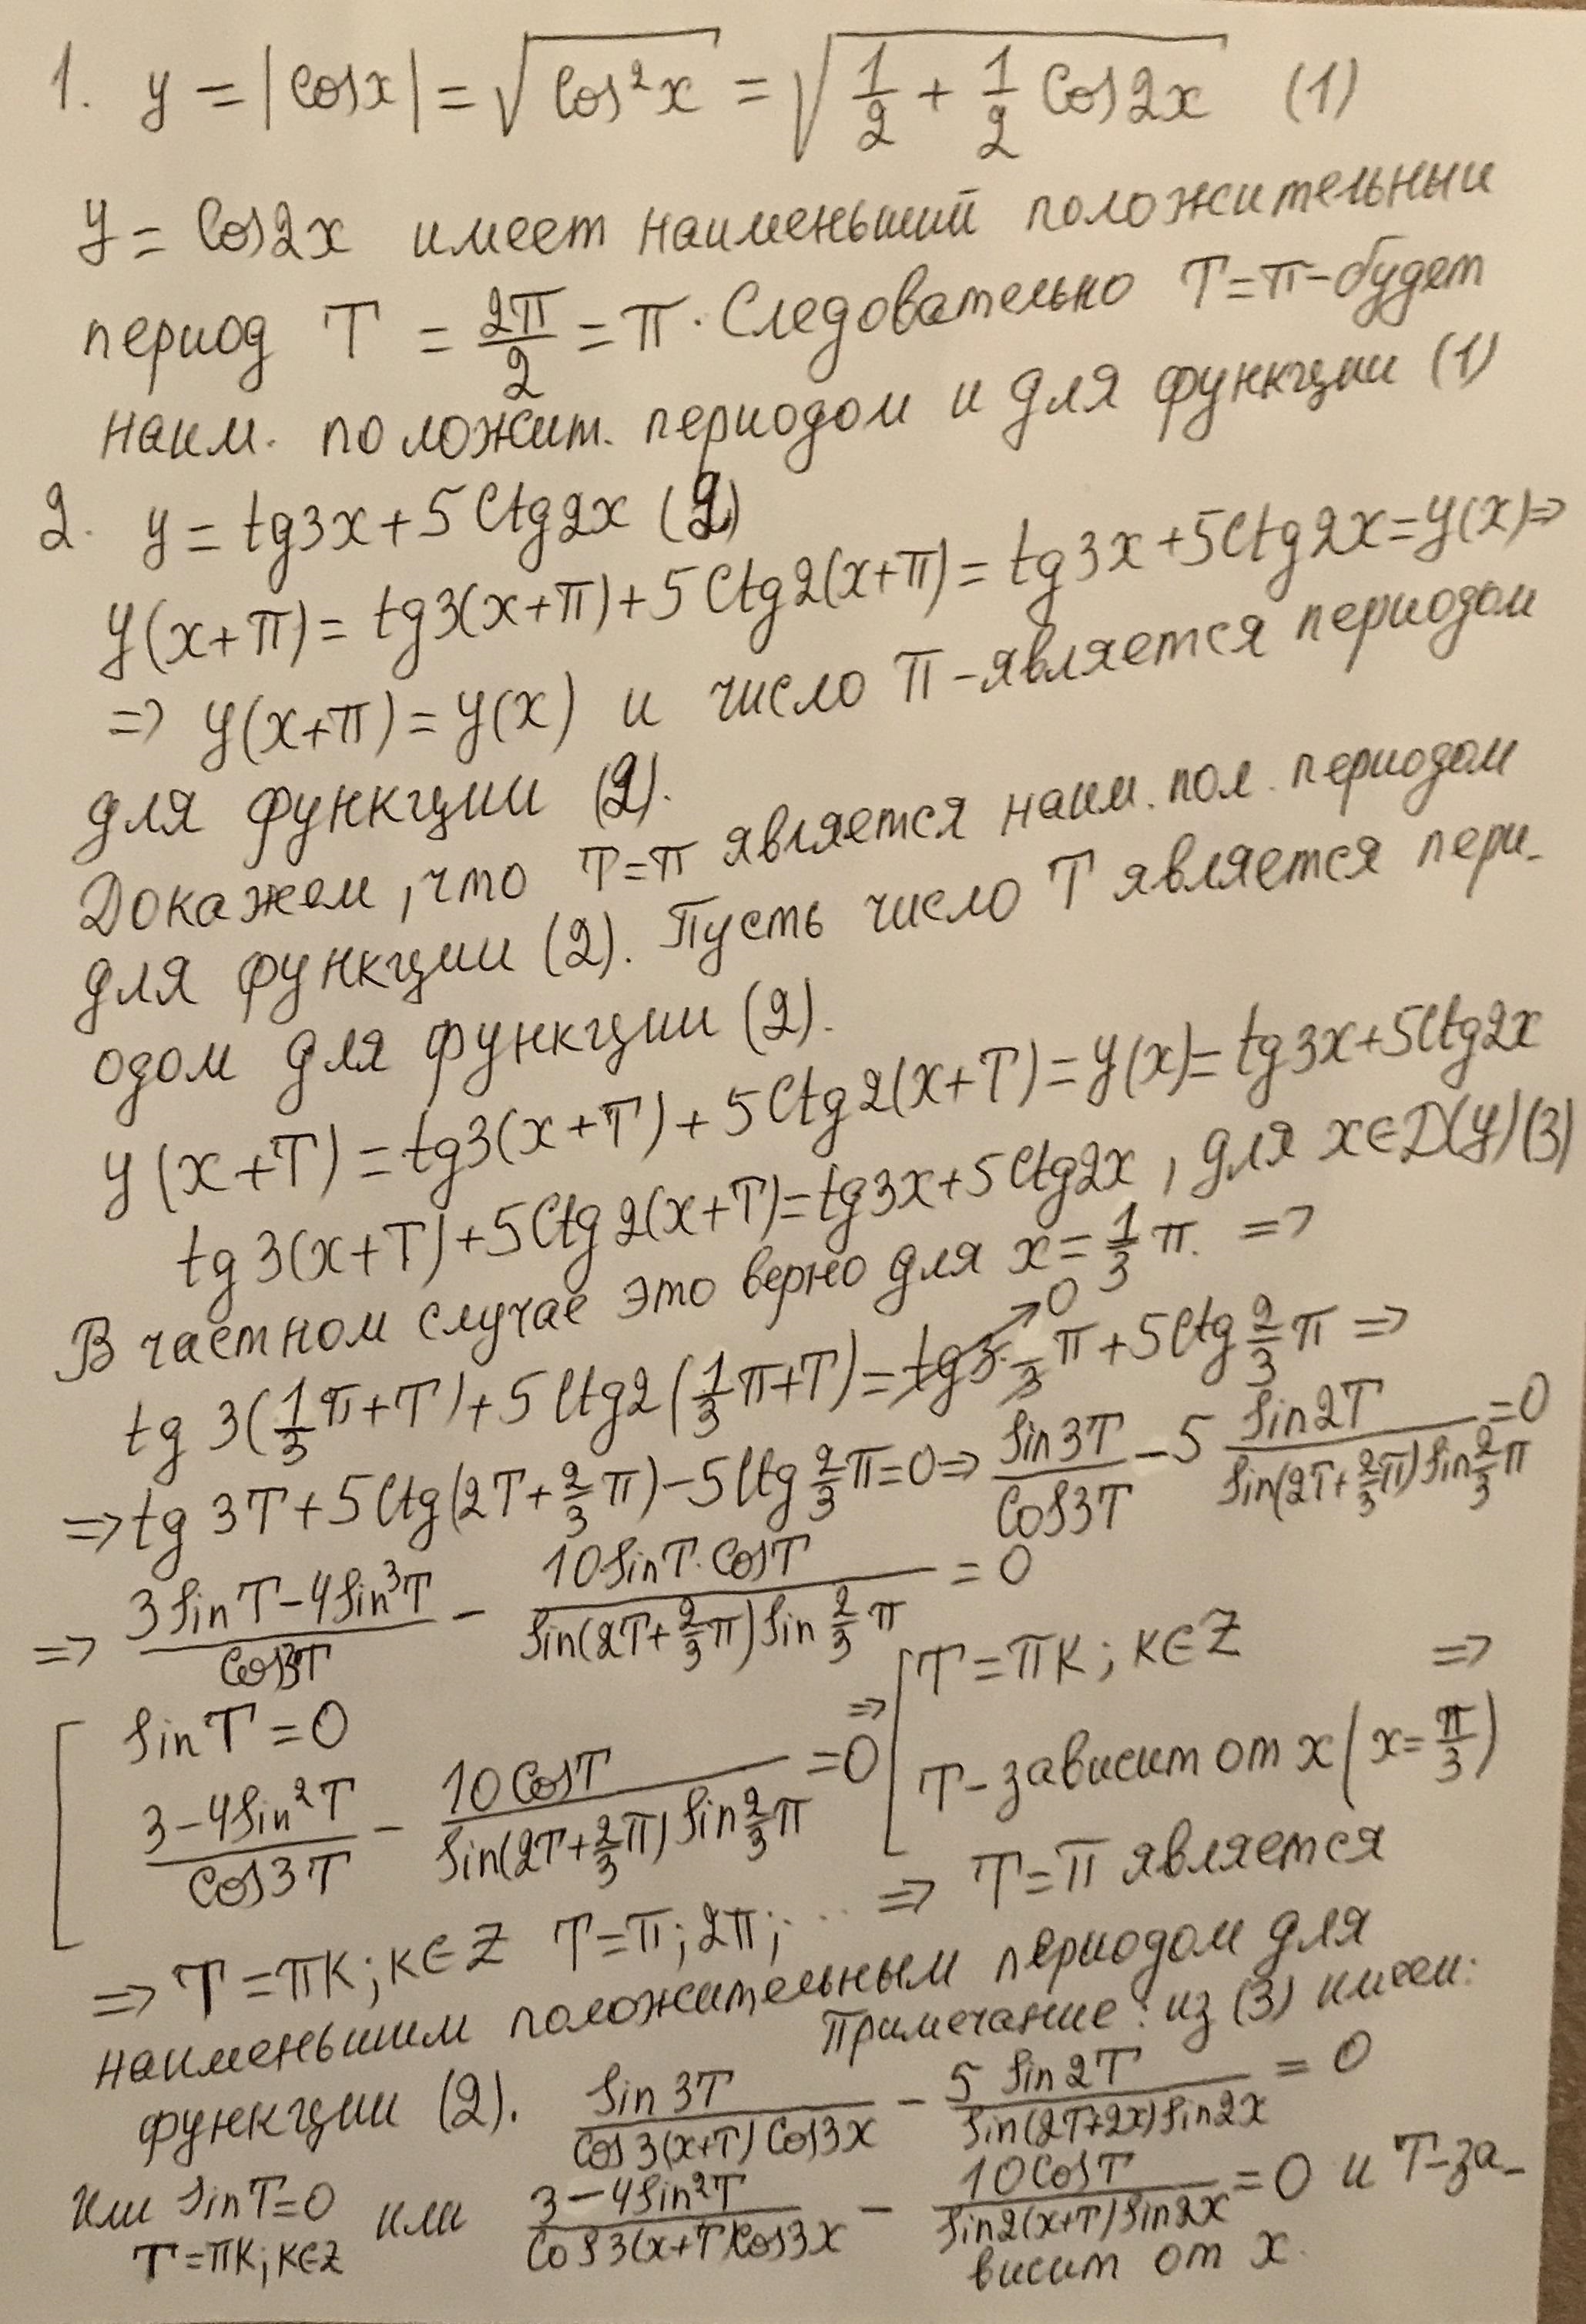 1. y = |cosx| = √(cos²x) = √(1/2 + 1/2 cos2x) (1)
y = cos2x имеет наименьший положительный
период T = 2π/2 = π. Следовательно T=π-будет
наим. положит. периодом и для функции (1)
2. y = tg3x+5ctg2x (2)
y(x+π)= tg3(x+π)+5ctg2(x+π)= tg3x+5ctg2x=y(x)⇒
⇒ y(x+π)=y(x) и число π-является периодом
для функции (2).
Докажем, что T=π является наим. пол. периодом
для функции (2). Пусть число T является пери-
одом для функции (2).
y(x+T)=tg3(x+T)+5ctg2(x+T)=y(x)=tg3x+5ctg2x
tg3(x+T)+5ctg2(x+T)=tg3x+5ctg2x, для x∈D(y)(3)
В частном случае это верно для x=1/3 π. ⇒
tg 3(1/3 π+T)+5ctg2(1/3 π+T)=tg3·1/3 π→0+5ctg 2/3 π ⇒
⇒tg 3T+5ctg(2T+2/3 π)-5ctg 2/3 π=0⇒ sin3T/cos3T - 5 sin2T/(sin(2T+2/3 π)sin 2/3 π)=0
⇒ (3sinT-4sin³T)/cos3T - 10sinT·cosT/(sin(2T+2/3 π)sin 2/3 π) = 0
[ sinT=0 ⇒ [ T=πk; k∈Z ⇒
(3-4sin²T)/cos3T - 10cosT/(sin(2T+2/3 π)sin 2/3 π)=0 T-зависит от x (x=π/3)
⇒ T=πk; k∈Z T=π; 2π; ... ⇒ T=π является
наименьшим положительным периодом для
функции (2). Примечание: из (3) имеем:
sin3T/(cos3(x+T)cos3x) - 5 sin2T/(sin(2T+2x)sin2x) = 0
или sinT=0 или (3-4sin²T)/(cos3(x+T)cos3x) - 10cosT/(sin2(x+T)sin2x)=0 и T-за-
T=πk; k∈Z висит от x.